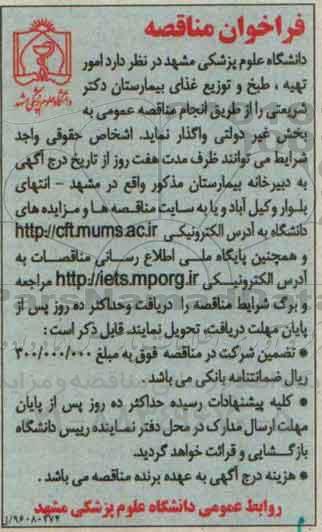 فراخوان مناقصه
دانشگاه علوم پزشکی مشهد
دانشگاه علوم پزشکی مشهد در نظر دارد امور
تهیه ، طبخ و توزیع غذای بیمارستان دکتر
شریعتی را از طریق انجام مناقصه عمومی به
بخش غیر دولتی واگذار نماید. اشخاص حقوقی واجد
شرایط می توانند ظرف مدت هفت روز از تاریخ درج آگهی
به دبیرخانه بیمارستان مذکور واقع در مشهد - انتهای
بلوار وکیل آباد و یا به سایت مناقصه ها و مزایده های
دانشگاه به آدرس الکترونیکی http://cft.mums.ac.ir
و همچنین پایگاه ملی اطلاع رسانی مناقصات به
آدرس الکترونیکی http://iets.mporg.ir مراجعه
و برگ شرایط مناقصه را دریافت وحداکثر ده روز پس از
پایان مهلت دریافت، تحویل نمایند. قابل ذکر است :
• تضمین شرکت در مناقصه فوق به مبلغ ۳۰۰/۰۰۰/۰۰۰
ریال ضمانتنامه بانکی می باشد .
• کلیه پیشنهادات رسیده حداکثر ده روز پس از پایان
مهلت ارسال مدارک در محل دفتر نماینده رییس دانشگاه
بازگشایی و قرائت خواهد گردید.
• هزینه درج آگهی به عهده برنده مناقصه می باشد .
روابط عمومی دانشگاه علوم پزشکی مشهد